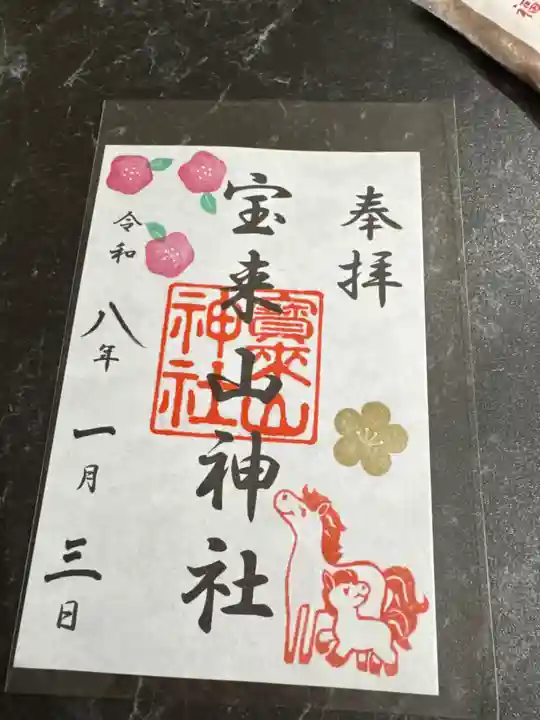 奉拝
宝来山神社
寶来山
神社
令和八年一月三日
福